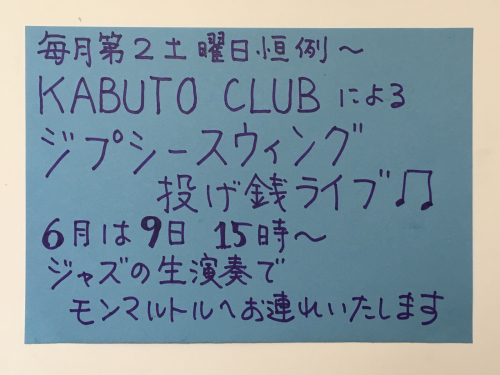 毎月第2土曜日恒例～
KABUTO CLUBによる
ジプシースウィング
投げ銭ライブ♫
6月は9日 15時～
ジャズの生演奏で
モンマルトルへお連れいたします